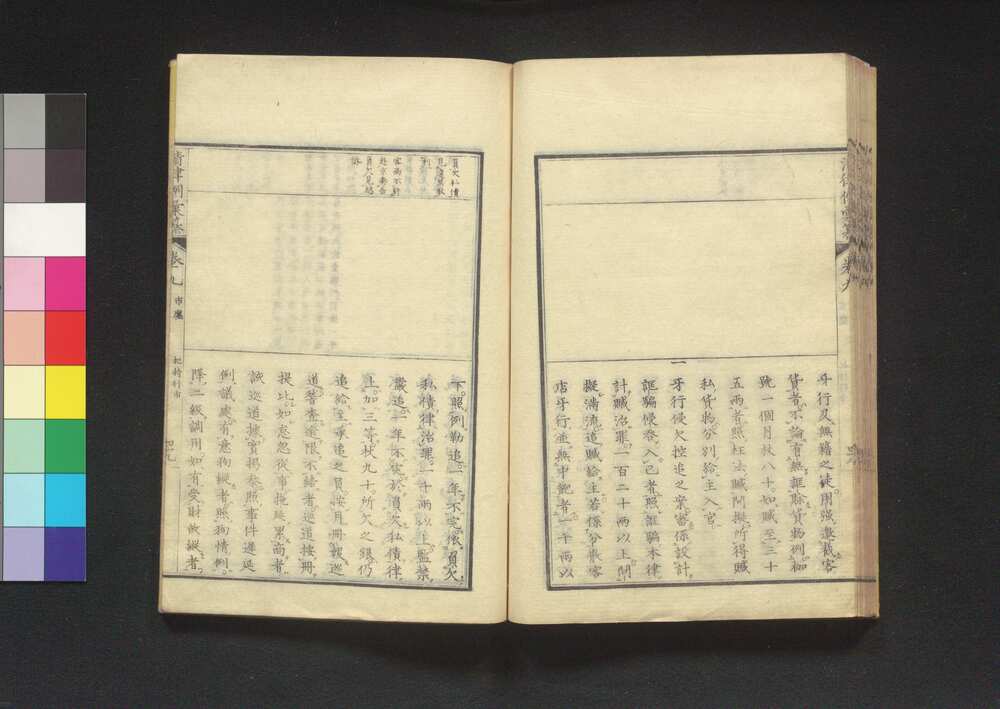 牙行及無籍之徒用强邀截客
貨者不論有無誆賒貨物例枷
號一個月杖八十如贓至三十
五兩者照枉法贓問擬所得贓
私貨物分別給主入官
一
牙行侵欠控追之案審係設計
誆騙侵吞入己者照誆騙本律
計贓治罪一百二十兩以上問
擬滿流追贓給主若係分散客
店牙行並無中飽者一千兩以
下照例勒追一年不完依負欠
私債律治罪一千兩以上監禁
嚴追一年不完於負欠私債律
上加三等杖九十所欠之銀仍
追給主承追之員按月冊報巡
道稽查逾限不結者巡道按冊
提比如怠忽從事拖延累商者
該巡道據實揭參照事件遲延
例議處有意狥縱者照狥情例
降二級調用如有受財故縱者
負欠私債
見違禁取
利
客商不許
赴京奏告
負欠見越
訴
清律例彙纂
卷九
市廛
把持行市